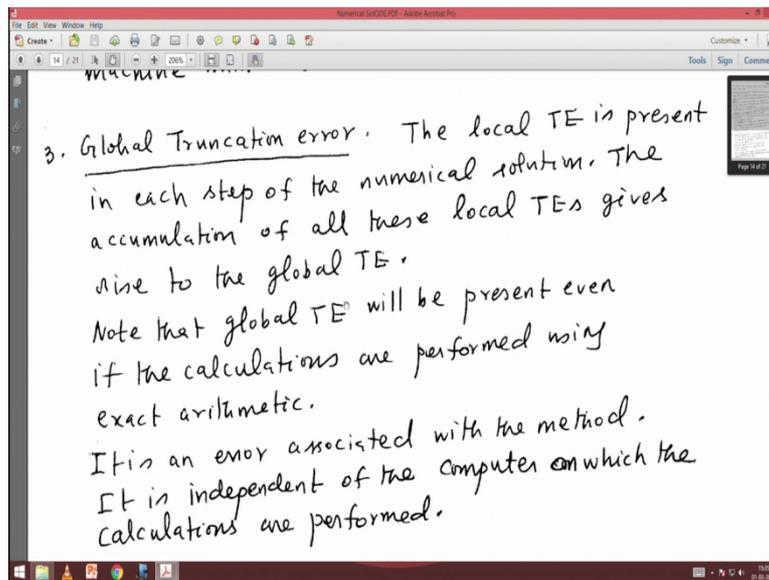 Numerical SolODE.PDF - Adobe Acrobat Pro
File Edit View Window Help
Create
Customize
14 / 21
206%
Tools Sign Comme
machine
3. Global Truncation error. The local TE is present
in each step of the numerical solution. The
accumulation of all these local TEs gives
rise to the global TE.
Note that global TE will be present even
if the calculations are performed using
exact arithmetic.
It is an error associated with the method.
It is independent of the computer on which the
calculations are performed.
Page 14 of 21